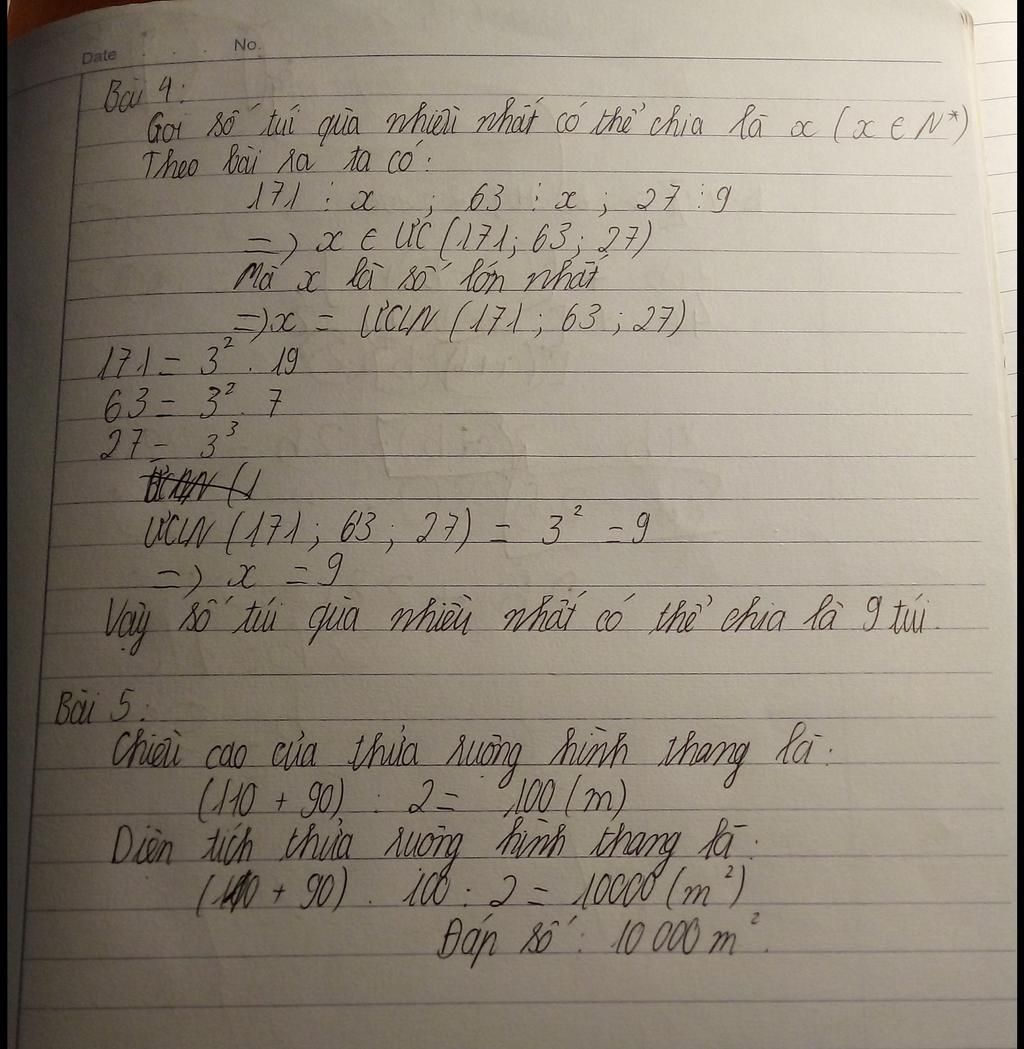 Date . . . No.
Bài 4:
Gọi số túi quà nhiều nhất có thể chia là x (x ∈ N*)
Theo bài ra ta có:
171 ⋮ x ; 63 ⋮ x ; 27 ⋮ 9
=> x ∈ ƯC (171; 63; 27)
Mà x là số lớn nhất
=> x = ƯCLN (171; 63; 27)
171 = 3² . 19
63 = 3² . 7
27 = 3³
ƯCLN (171; 63; 27) = 3² = 9
=> x = 9
Vậy số túi quà nhiều nhất có thể chia là 9 túi.
Bài 5:
Chiều cao của thửa ruộng hình thang là:
(110 + 90) : 2 = 100 (m)
Diện tích thửa ruộng hình thang là:
(110 + 90) . 100 : 2 = 10000 (m²)
Đáp số: 10 000 m².